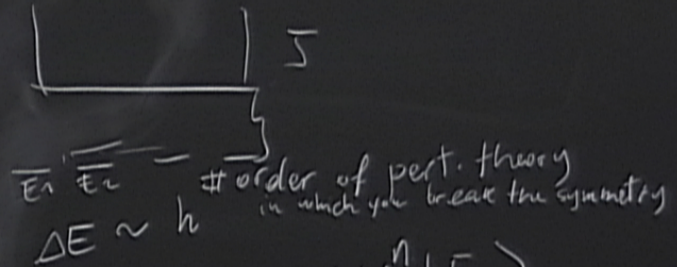 J
E₁ E₂ # order of pert. theory
in which you break the symmetry
ΔE ~ h